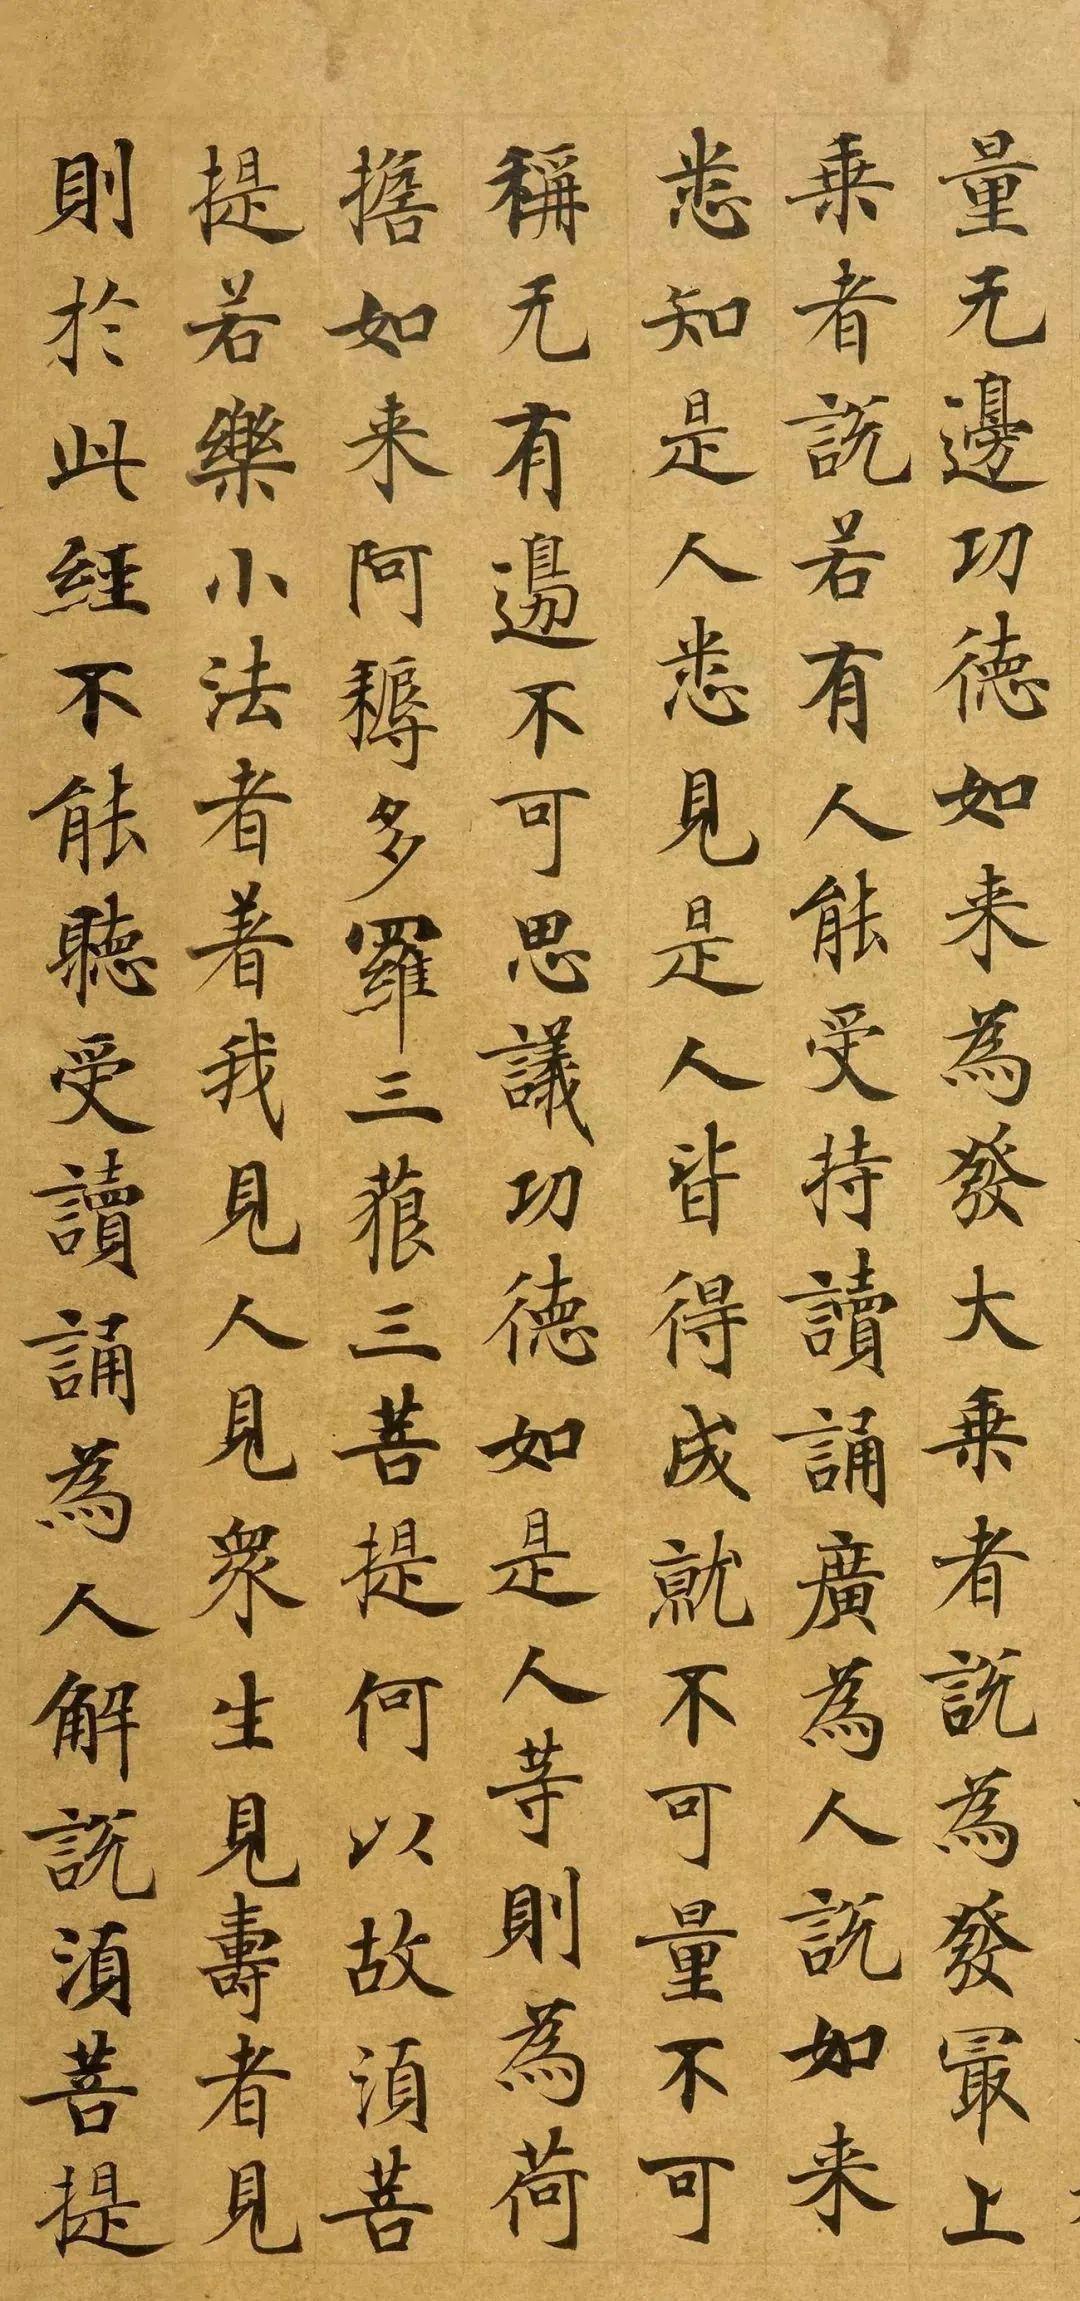 量无邊功德如来為發大乗者説為發冣上
乗者説若有人能受持讀誦廣為人説如来
悉知是人悉見是人皆得成就不可量不可
稱无有邊不可思議功德如是人等則為荷
擔如来阿耨多羅三藐三菩提何以故湏菩
提若樂小法者著我見人見眾生見壽者見
則於此經不能聽受讀誦為人解説湏菩提